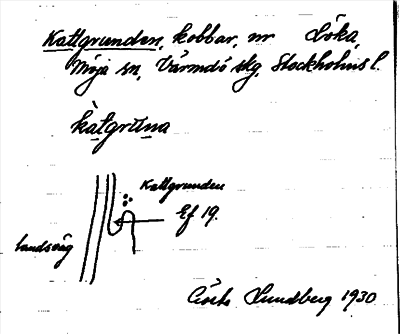 Kattgrunden, kobbar, nr Löka,
Möja sn, Värmdö skg, Stockholms l.
kàtgruna
Kattgrunden
Ef 19.
landsväg
Gösta Lundberg 1930